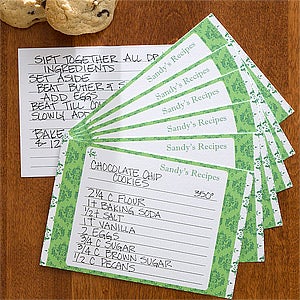 SIFT TOGETHER ALL DR
INGREDIENTS
SET ASIDE
BEAT BUTTER &
ADD EGGS
BEAT TILL
SLOWLY ADD
BAKE
& 12
Sandy's Recipes
Sandy's Recipes
Sandy's Recipes
Sandy's Recipes
Sandy's Recipes
Sandy's Recipes
CHOCOLATE CHIP
COOKIES 350°
2 1/4 C FLOUR
1 t BAKING SODA
1/2 t SALT
1 t VANILLA
2 EGGS
3/4 C SUGAR
3/4 C BROWN SUGAR
1/2 C PECANS